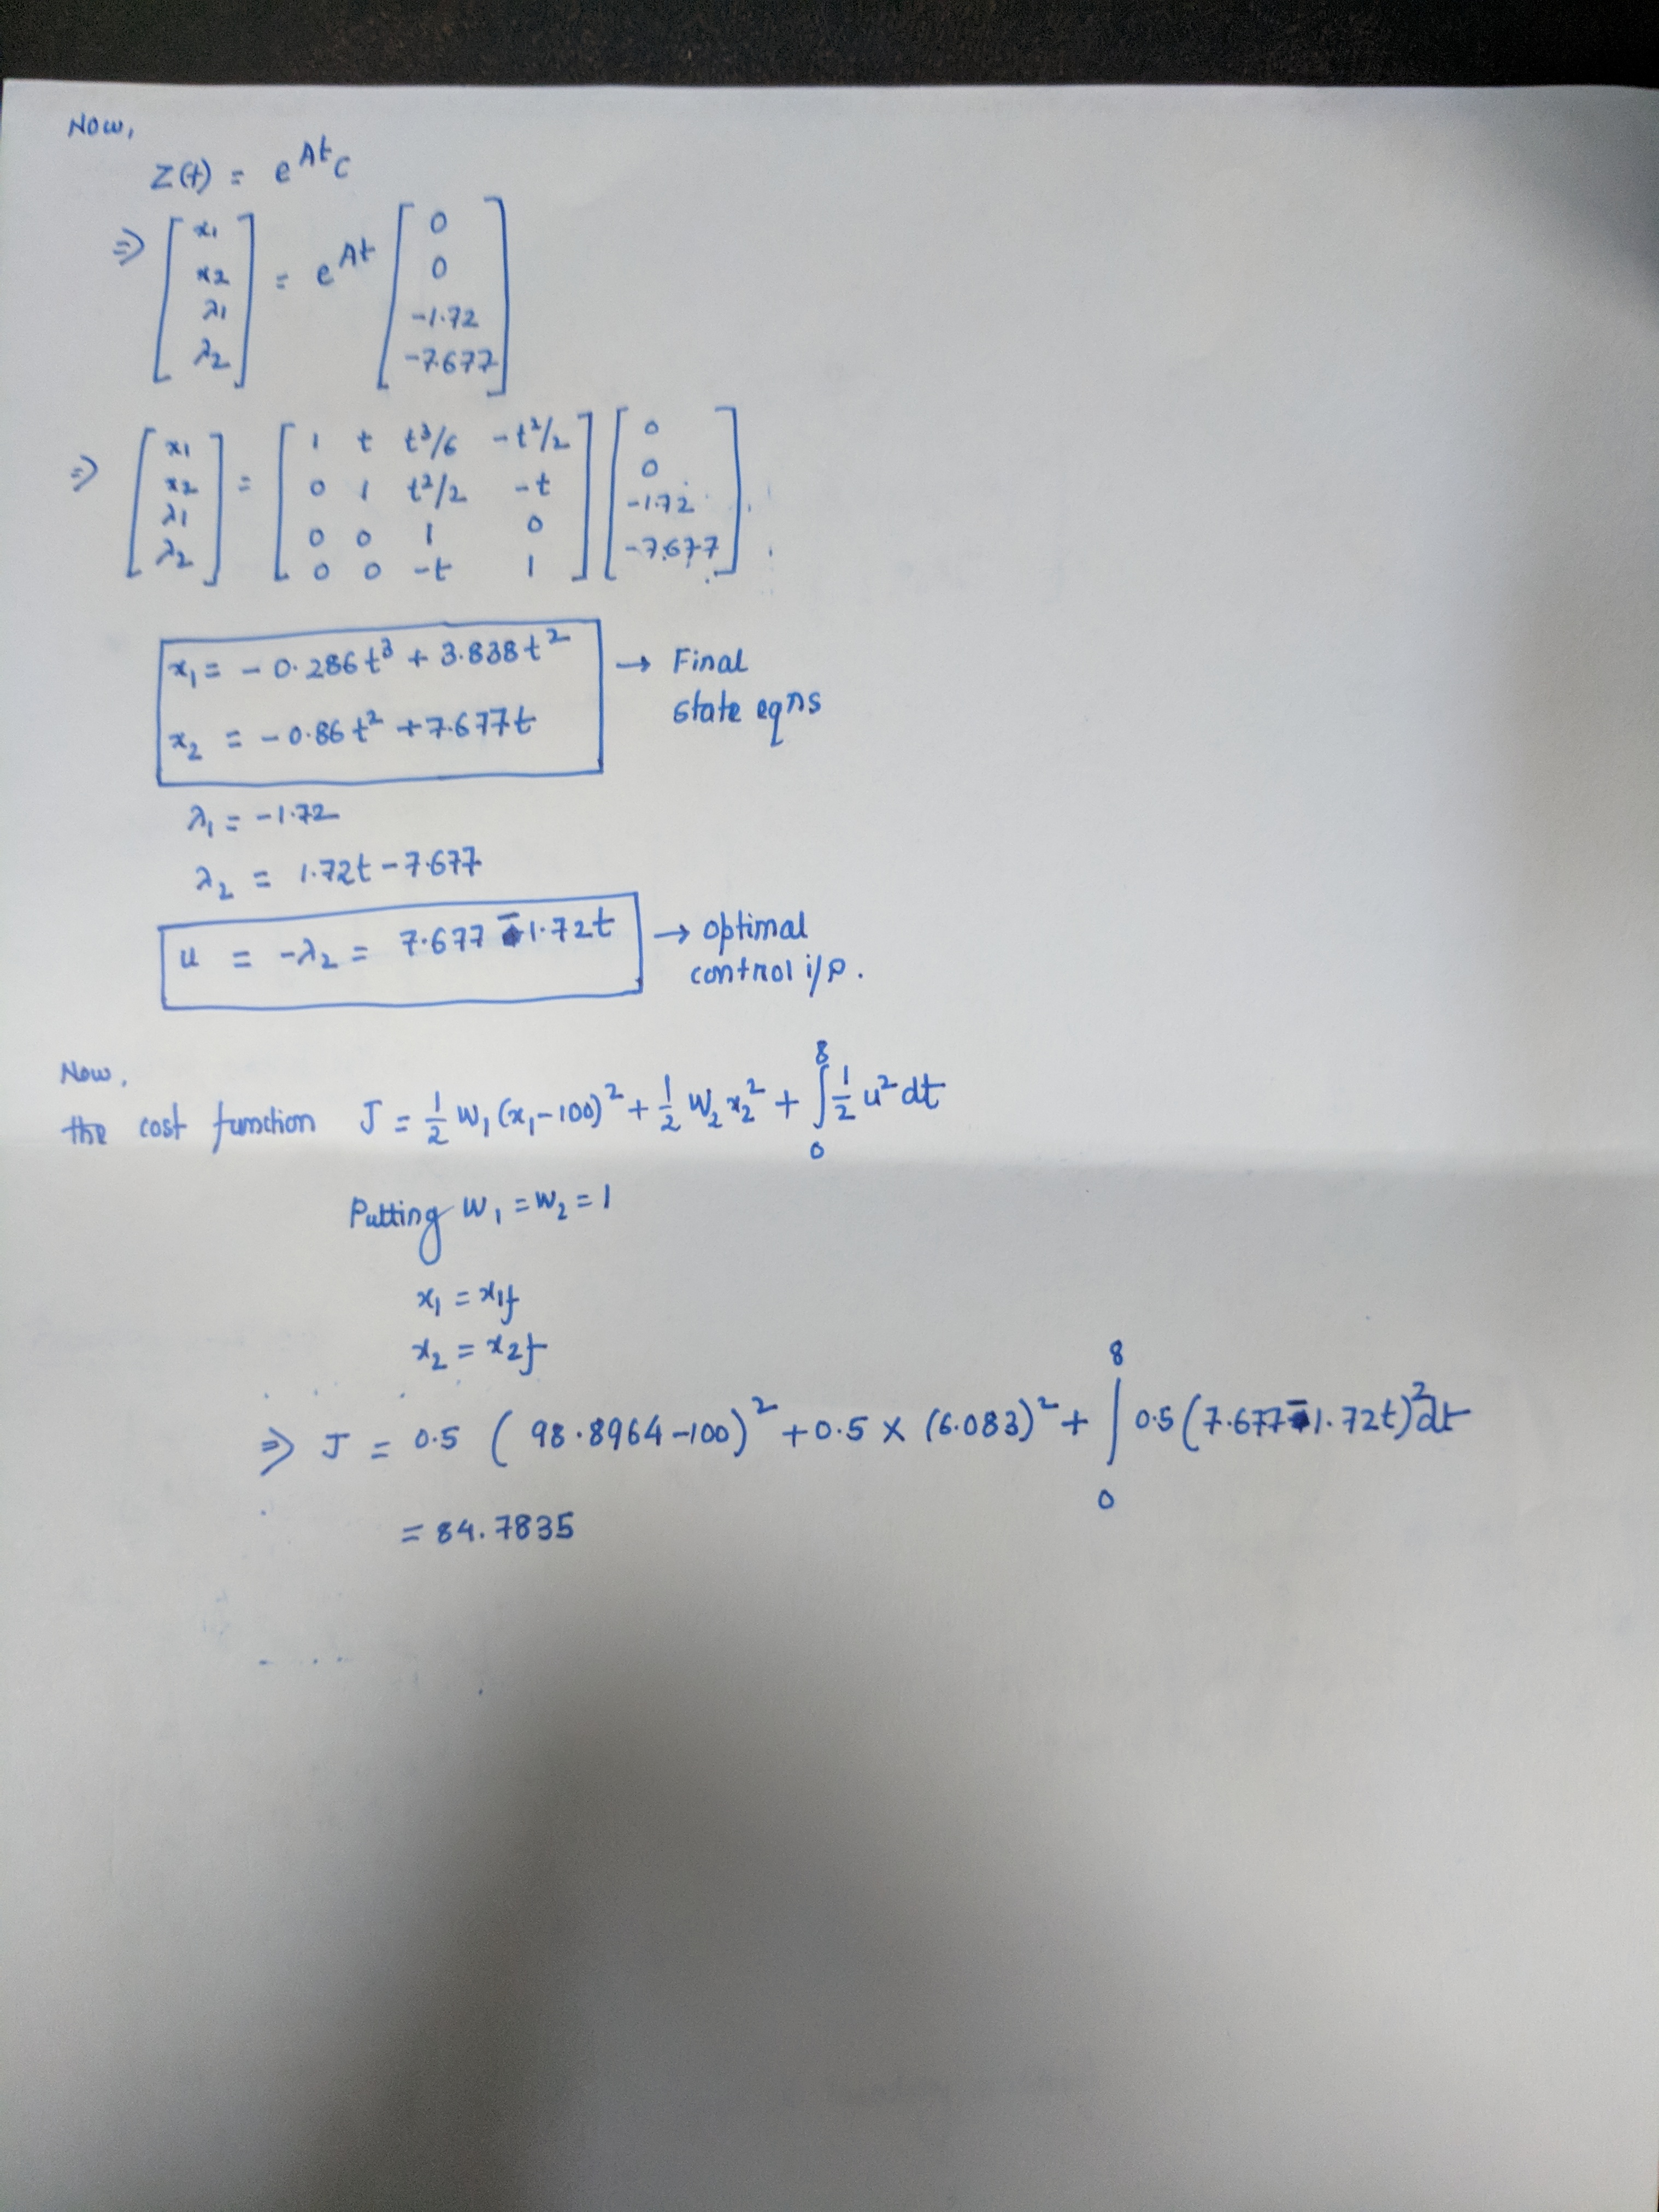 Now,
Z(t) = e^{At} C
⇒ [x₁ x₂ λ₁ λ₂] = e^{At} [0 0 -1.72 -7.677]
⇒ [x₁ x₂ λ₁ λ₂] = [1 t t³/6 -t²/2; 0 1 t²/2 -t; 0 0 1 0; 0 0 -t 1] [0 0 -1.72 -7.677]
x₁ = - 0.286t³ + 3.838t² → Final
state eqns
x₂ = - 0.86t² + 7.677t
λ₁ = -1.72
λ₂ = 1.72t - 7.677
u = -λ₂ = 7.677 - 1.72t → optimal
control i/p.
Now,
the cost function J = ½ W₁ (x₁-100)² + ½ W₂ x₂² + ∫₀⁸ ½ u² dt
Putting W₁ = W₂ = 1
x₁ = x₁f
x₂ = x₂f
⇒ J = 0.5 (98.8964-100)² + 0.5 × (6.083)² + ∫₀⁸ 0.5 (7.677 - 1.72t)² dt
= 84.7835